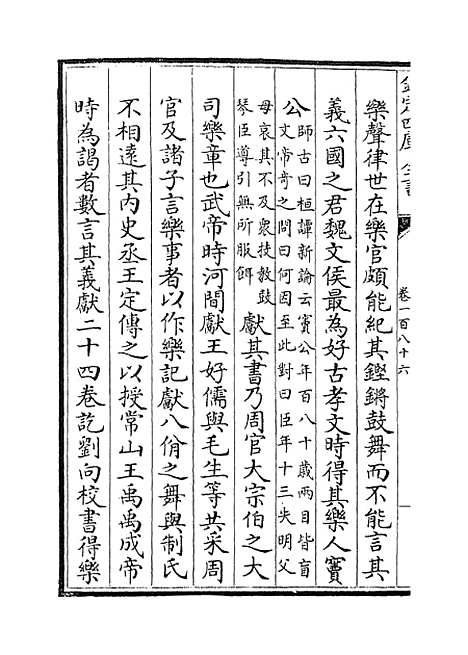 欽定四庫全書
卷一百八十六
樂聲律世在樂官頗能紀其鏗鏘鼓舞而不能言其
義六國之君魏文侯最為好古孝文時得其樂人竇
公
師古曰桓譚新論云竇公年百八十歲兩目皆盲
文帝奇之問曰何因至此對曰臣年十三失明父
母哀其不及衆技教鼓
琴臣導引無所服餌
獻其書乃周官大宗伯之大
司樂章也武帝時河間獻王好儒與毛生等共采周
官及諸子言樂事者以作樂記獻八佾之舞與制氏
不相遠其內史丞王定傳之以授常山王禹禹成帝
時為謁者數言其義獻二十四卷訖劉向校書得樂